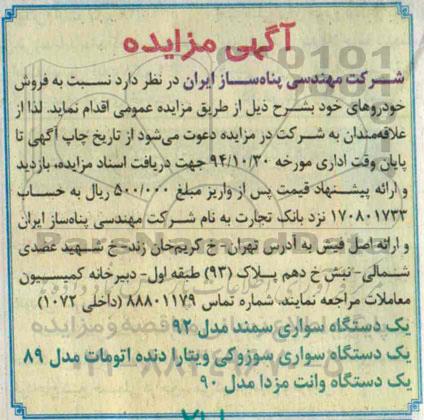 آگهی مزایده
شرکت مهندسی پناه‌ساز ایران در نظر دارد نسبت به فروش
خودروهای خود بشرح ذیل از طریق مزایده عمومی اقدام نماید. لذا از
علاقه‌مندان به شرکت در مزایده دعوت می‌شود از تاریخ چاپ آگهی تا
پایان وقت اداری مورخه ۹۴/۱۰/۳۰ جهت دریافت اسناد مزایده، بازدید
و ارائه پیشنهاد قیمت پس از واریز مبلغ ۵۰۰/۰۰۰ ریال به حساب
۱۷۰۸۰۱۷۳۳ نزد بانک تجارت به نام شرکت مهندسی پناه‌ساز ایران
و ارائه اصل فیش به آدرس تهران- خ کریم‌خان زند- خ شهید عضدی
شمالی- نبش خ دهم پلاک (۹۳) طبقه اول- دبیرخانه کمیسیون
معاملات مراجعه نمایند. شماره تماس ۸۸۸۰۱۱۷۹ (داخلی ۱۰۷۲)
یک دستگاه سواری سمند مدل ۹۲
یک دستگاه سواری سوزوکی ویتارا دنده اتومات مدل ۸۹
یک دستگاه وانت مزدا مدل ۹۰